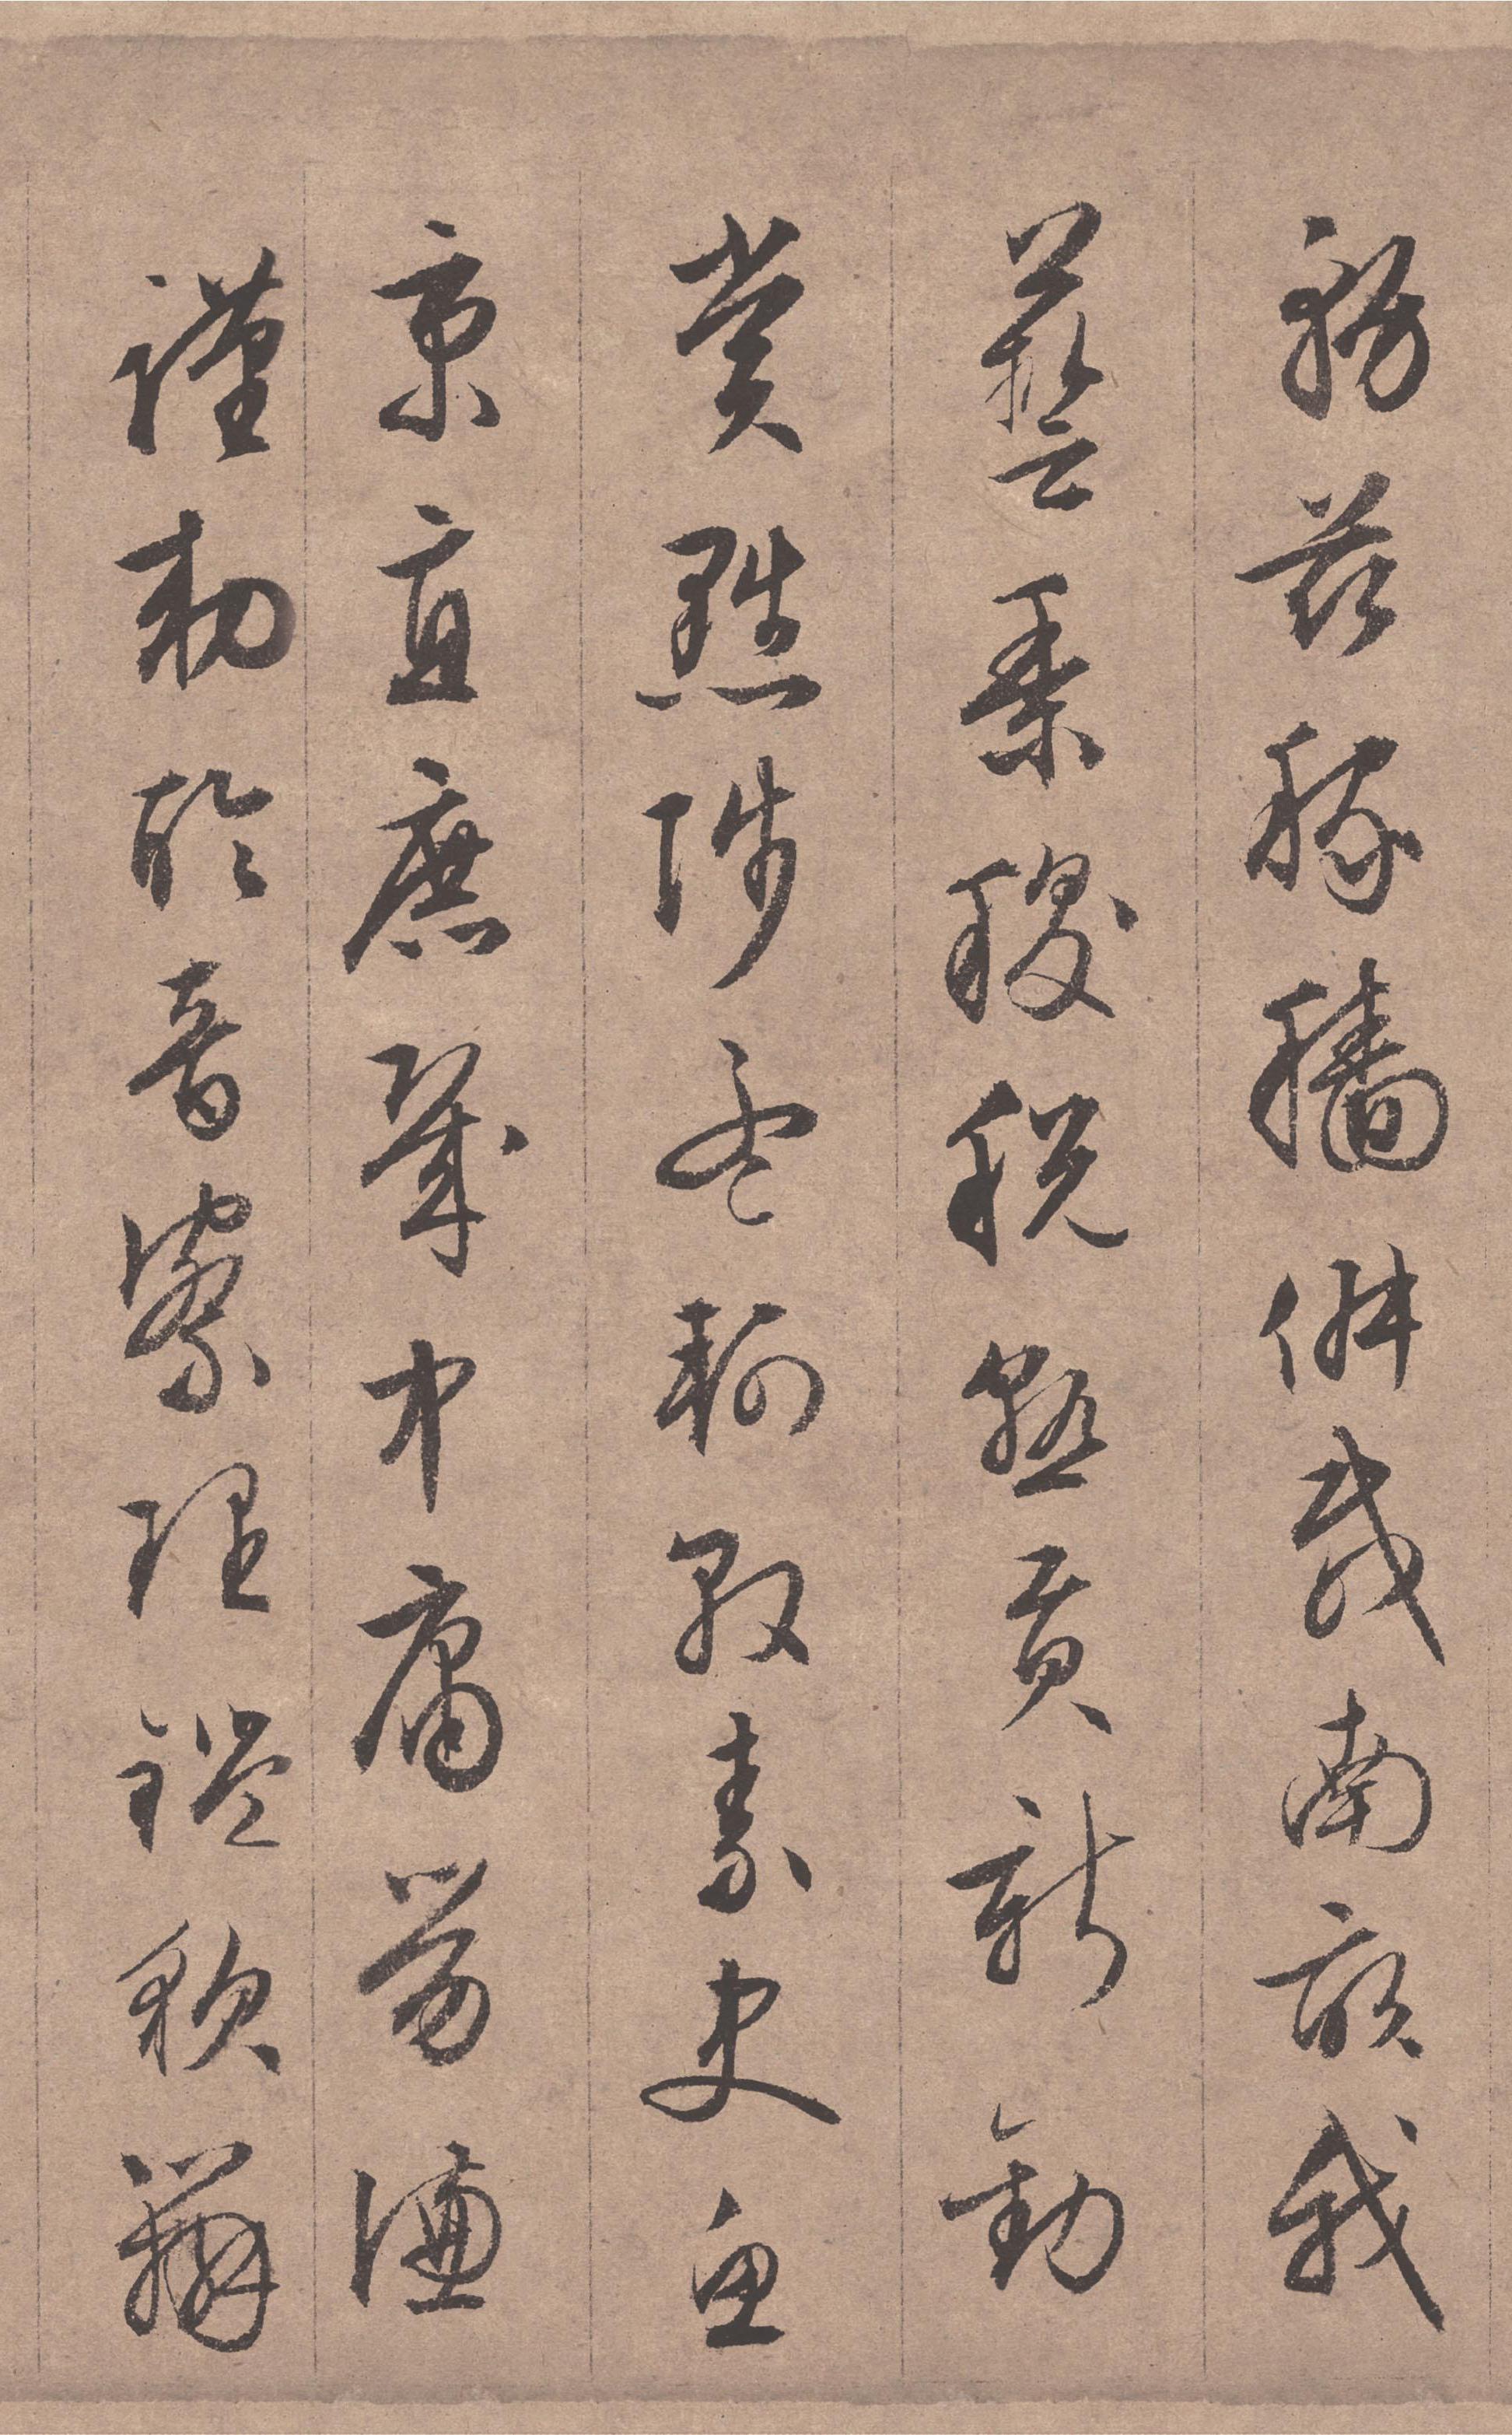 務茲稼穡俶載南畝我
藝黍稷稅熟貢新勸
賞黜陟孟軻敦素史魚
秉直庶幾中庸勞謙
謹勅聆音察理鑑貌辨